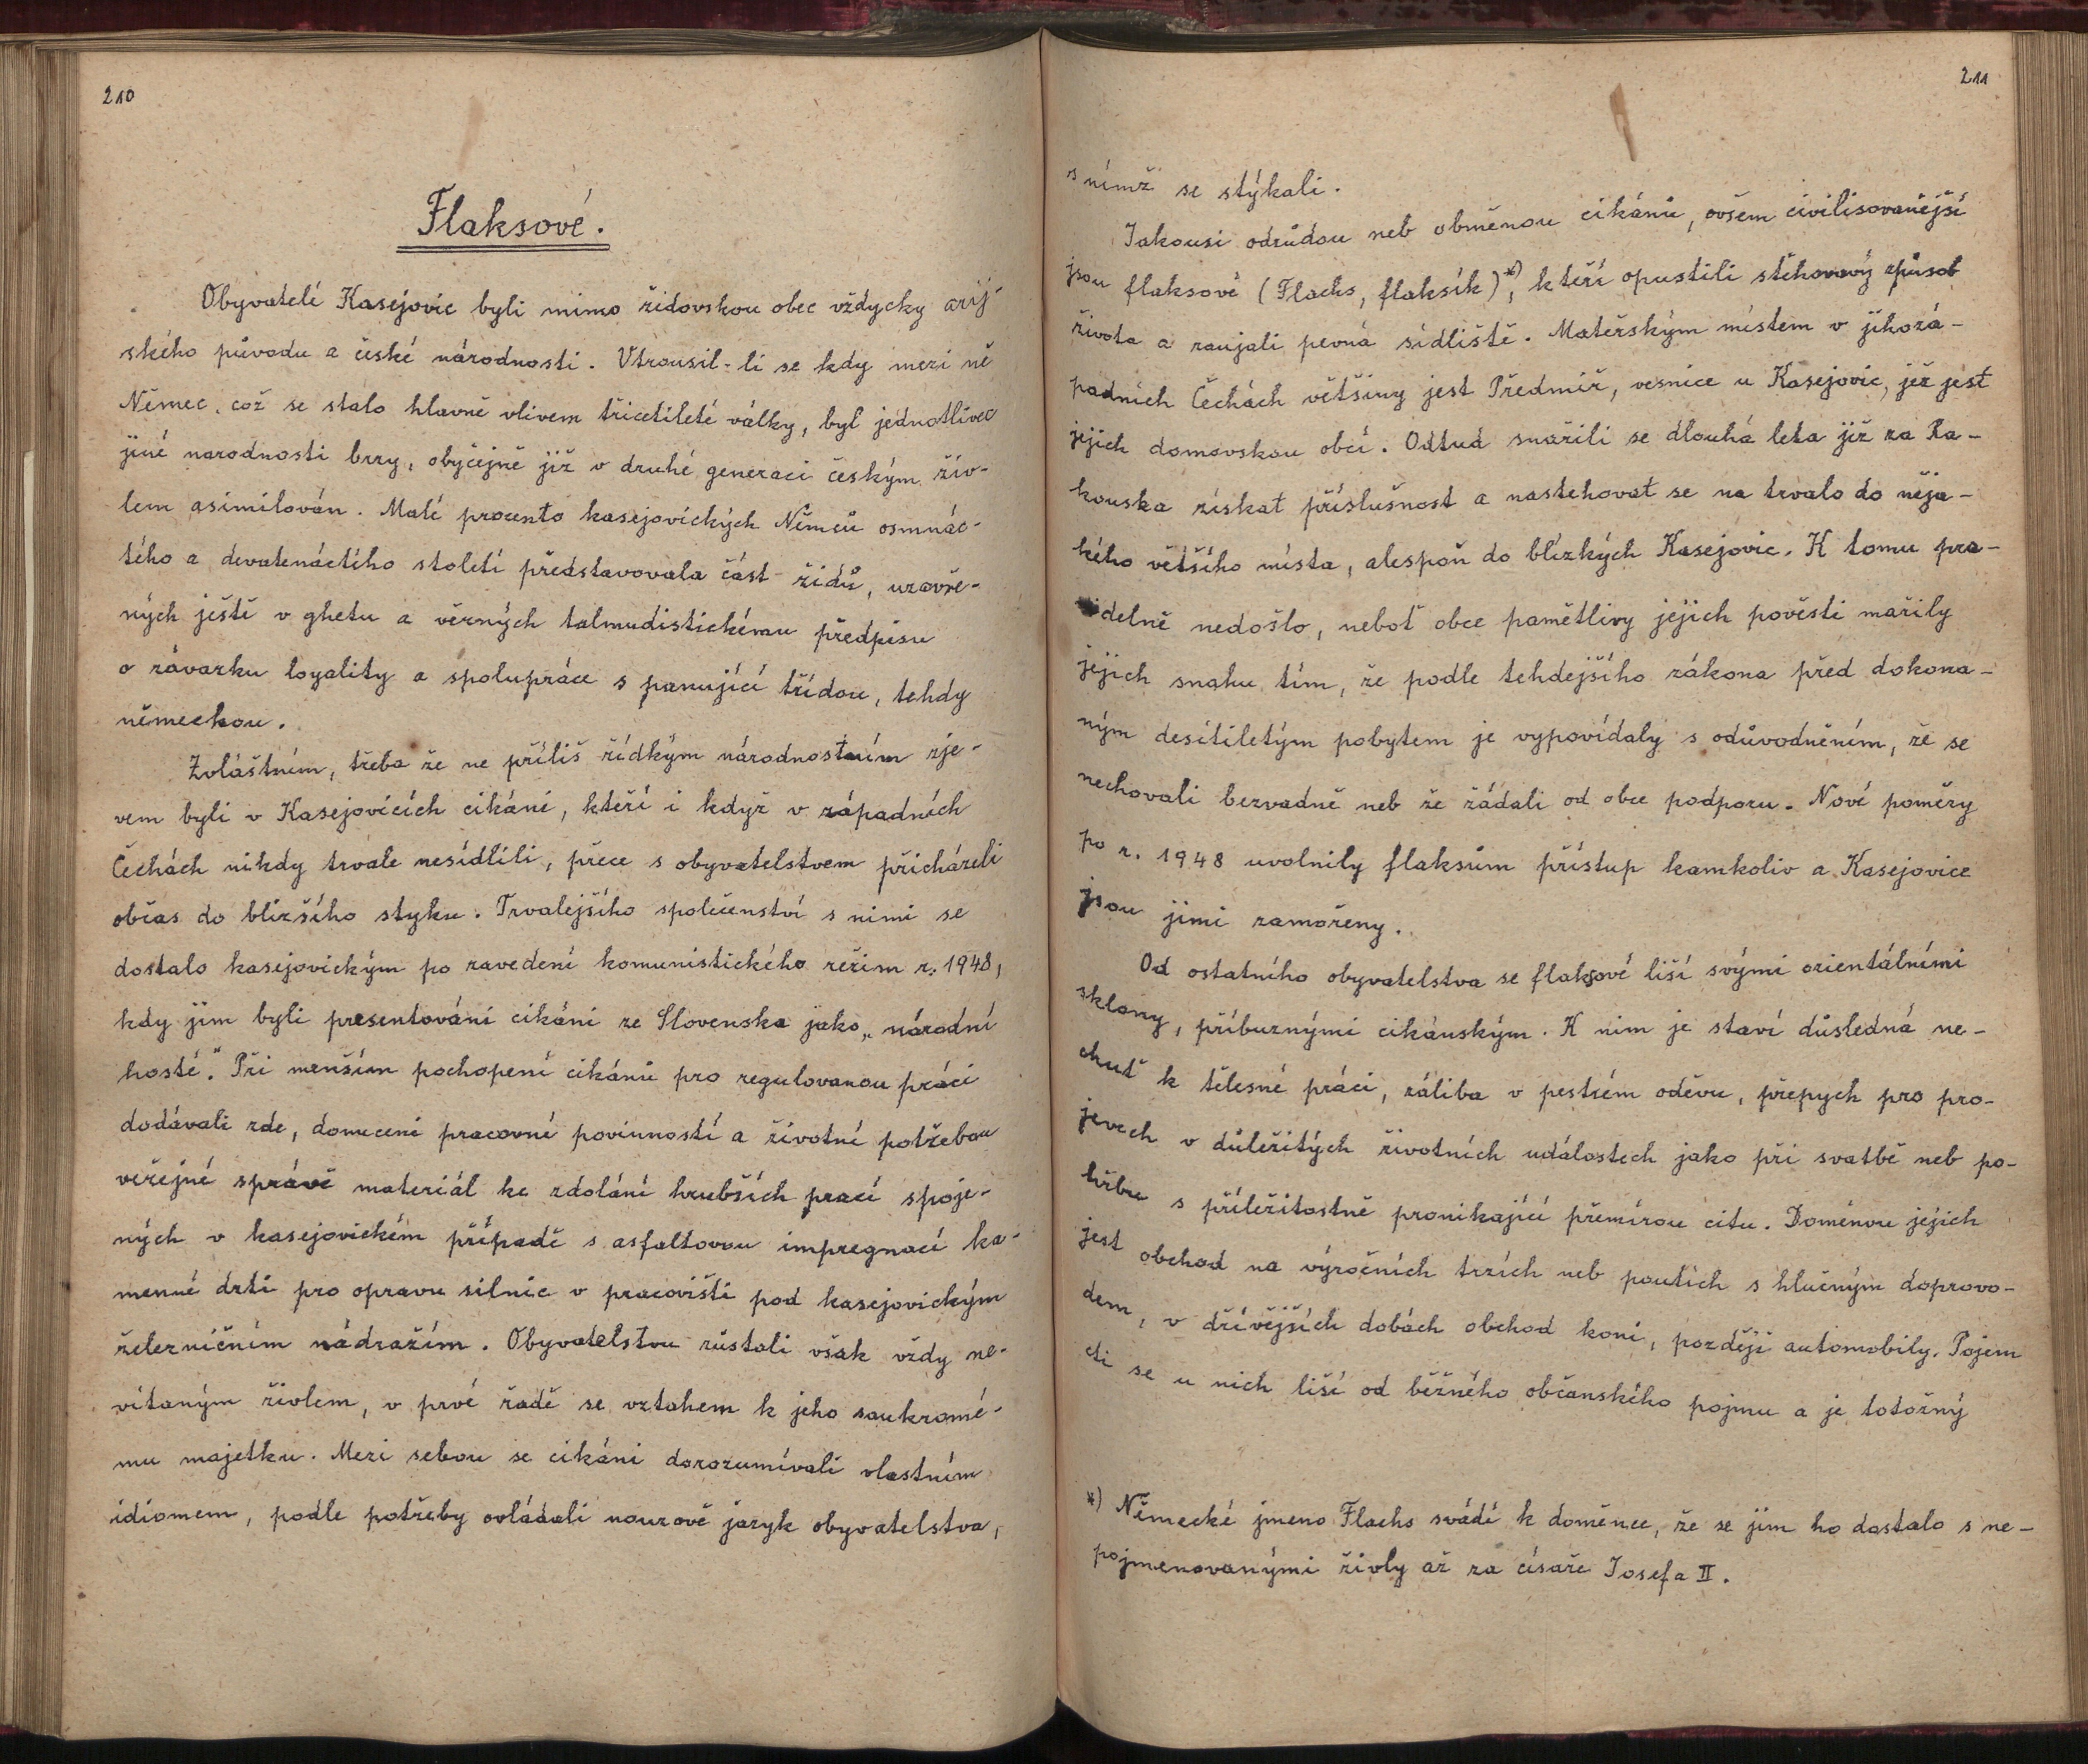 210
Flaksové.
Obyvatelé Kasejovic byli mimo židovskou obec vždycky arij-
ského původu a české národnosti. Vtrousil-li se kdy mezi ně
Němec, což se stalo hlavně vlivem třicetileté války, byl jednotlivec
jiné narodnosti brzy, obyčejně již v druhé generaci českým živ-
lem asimilován. Malé procento kasejovických Němců osmnác-
tého a devatenáctého století představovala část židů, uzavře-
ných ještě v ghetu a věrných talmudistickému předpisu
o závazku loyality a spolupráce s panující třídou, tehdy
německou.
Zvláštním, třeba že ne příliš řídkým národnostním zje-
vem byli v Kasejovicích cikáni, kteří i když v západních
Čechách nikdy trvale nesídlili, přece s obyvatelstvem přicházeli
občas do bližšího styku. Trvalejšího společenství s nimi se
dostalo kasejovickým po zavedení komunistického režim r. 1948,
kdy jim byli presentováni cikáni ze Slovenska jako „národní
hosté". Při menším pochopení cikánů pro regulovanou práci
dodávali zde, donuceni pracovní povinností a životní potřebou
veřejné správě materiál ke zdolání hrubších prací spoje-
ných v kasejovickém případě s asfaltovou impregnací ka-
menné drti pro opravu silnic v pracovišti pod kasejovickým
železničním nádražím. Obyvatelstvu zůstali však vždy ne-
vítaným živlem, v prvé řadě se vztahem k jeho soukromé-
mu majetku. Mezi sebou se cikáni dorozumívali vlastním
idiomem, podle potřeby ovládali nouzově jazyk obyvatelstva,
211
s nímž se stýkali.
Jakousi odrůdou neb obměnou cikánů, ovšem civilisovanější
jsou flaksové (Flachs, flaksík)*), kteří opustili stěhovavý způsob
života a zaujali pevná sídliště. Mateřským místem v jihozá-
padních Čechách většiny jest Předmíř, vesnice u Kasejovic, jež jest
jejich domovskou obcí. Odtud snažili se dlouhá léta již za Ra-
kouska získat příslušnost a nastehovat se na trvalo do něja-
kého většího místa, alespoň do blízkých Kasejovic. K tomu pra-
videlně nedošlo, neboť obce pamětlivy jejich pověsti mařily
jejich snahu tím, že podle tehdejšího zákona před dokona-
ným desítiletým pobytem je vypovídaly s odůvodněním, že se
nechovali bezvadně neb že žádali od obce podporu. Nové poměry
po r. 1948 uvolnily flaksům přístup kamkoliv a Kasejovice
jsou jimi zamořeny.
Od ostatního obyvatelstva se flaksové liší svými orientálními
sklony, příbuznými cikánským. K nim je staví důsledná ne-
chuť k tělesné práci, záliba v pestrém oděvu, přepych pro pro-
jevech v důležitých životních událostech jako při svatbě neb po-
hřbu s příležitostně pronikající přemírou citu. Doménou jejich
jest obchod na výročních trzích neb poutích s hlučným doprovo-
dem, v dřívějších dobách obchod koni, později automobily. Pojem
cti se u nich liší od běžného občanského pojmu a je totožný
*) Německé jmeno Flachs svádí k doměnce, že se jim ho dostalo s ne-
pojmenovanými živly až za císaře Josefa II.